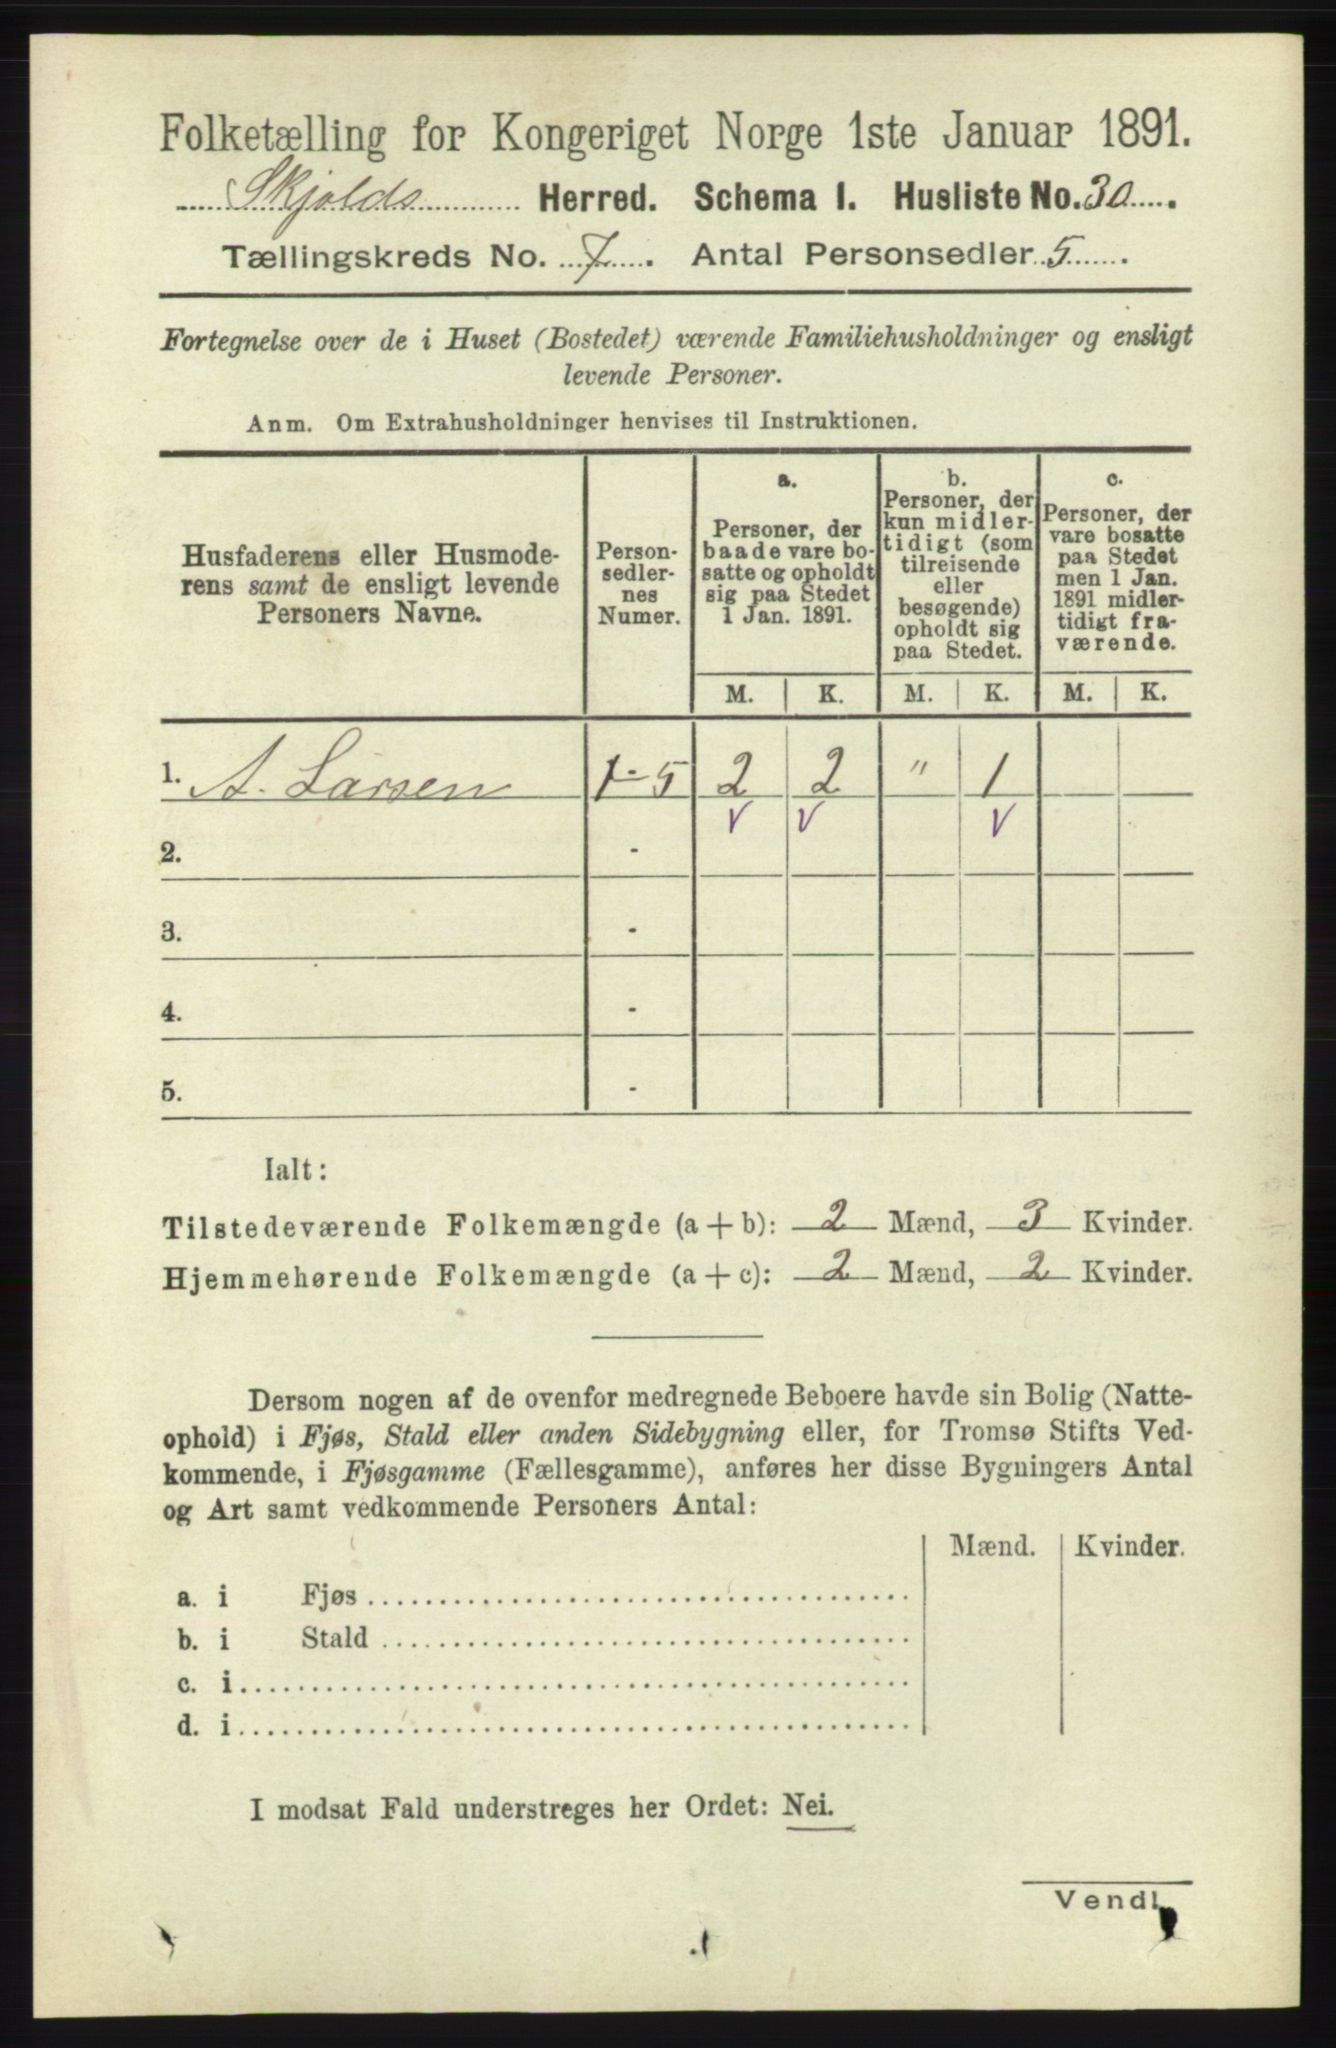 Folketælling for Kongeriget Norge 1ste Januar 1891.
Skjolds Herred. Schema I. Husliste No. 30.
Tællingskreds No. 7. Antal Personsedler 5.
Fortegnelse over de i Huset (Bostedet) værende Familiehusholdninger og ensligt
levende Personer.
Anm. Om Extrahusholdninger henvises til Instruktionen.
Husfaderens eller Husmode-
rens samt de ensligt levende
Personers Navne.
Person-
sedler-
nes
Numer.
a.
Personer, der
baade vare bo-
satte og opholdt
sig paa Stedet
1 Jan. 1891.
b.
Personer, der
kun midler-
tidigt (som
tilreisende
eller
besøgende)
opholdt sig
paa Stedet.
c.
Personer, der
vare bosatte
paa Stedet
men 1 Jan.
1891 midler-
tidigt fra-
værende.
M. K. M. K. M. K.
1. A. Larsen 1-5 2 2 " 1
V V V
2. -
3. -
4. -
5. -
Ialt:
Tilstedeværende Folkemængde (a + b): 2 Mænd, 3 Kvinder.
Hjemmehørende Folkemængde (a + c): 2 Mænd, 2 Kvinder.
Dersom nogen af de ovenfor medregnede Beboere havde sin Bolig (Natte-
ophold) i Fjøs, Stald eller anden Sidebygning eller, for Tromsø Stifts Ved-
kommende, i Fjøsgamme (Fællesgamme), anføres her disse Bygningers Antal
og Art samt vedkommende Personers Antal:
Mænd. Kvinder.
a. i Fjøs
b. i Stald
c. i
d. i
I modsat Fald understreges her Ordet: Nei.
Vend!